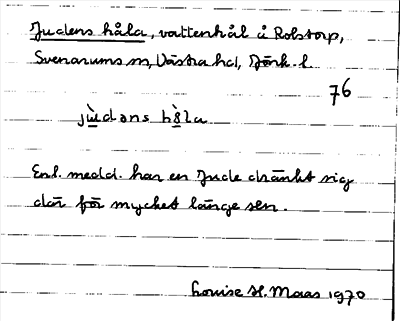 Judens håla, vattenhål å Rolstorp,
Svenarums sn, Västra hd, Jönk. l.
76
jùdəns hòla
Enl. medd. har en Jude dränkt sig
där för mycket länge sen.
Louise H. Maas 1970